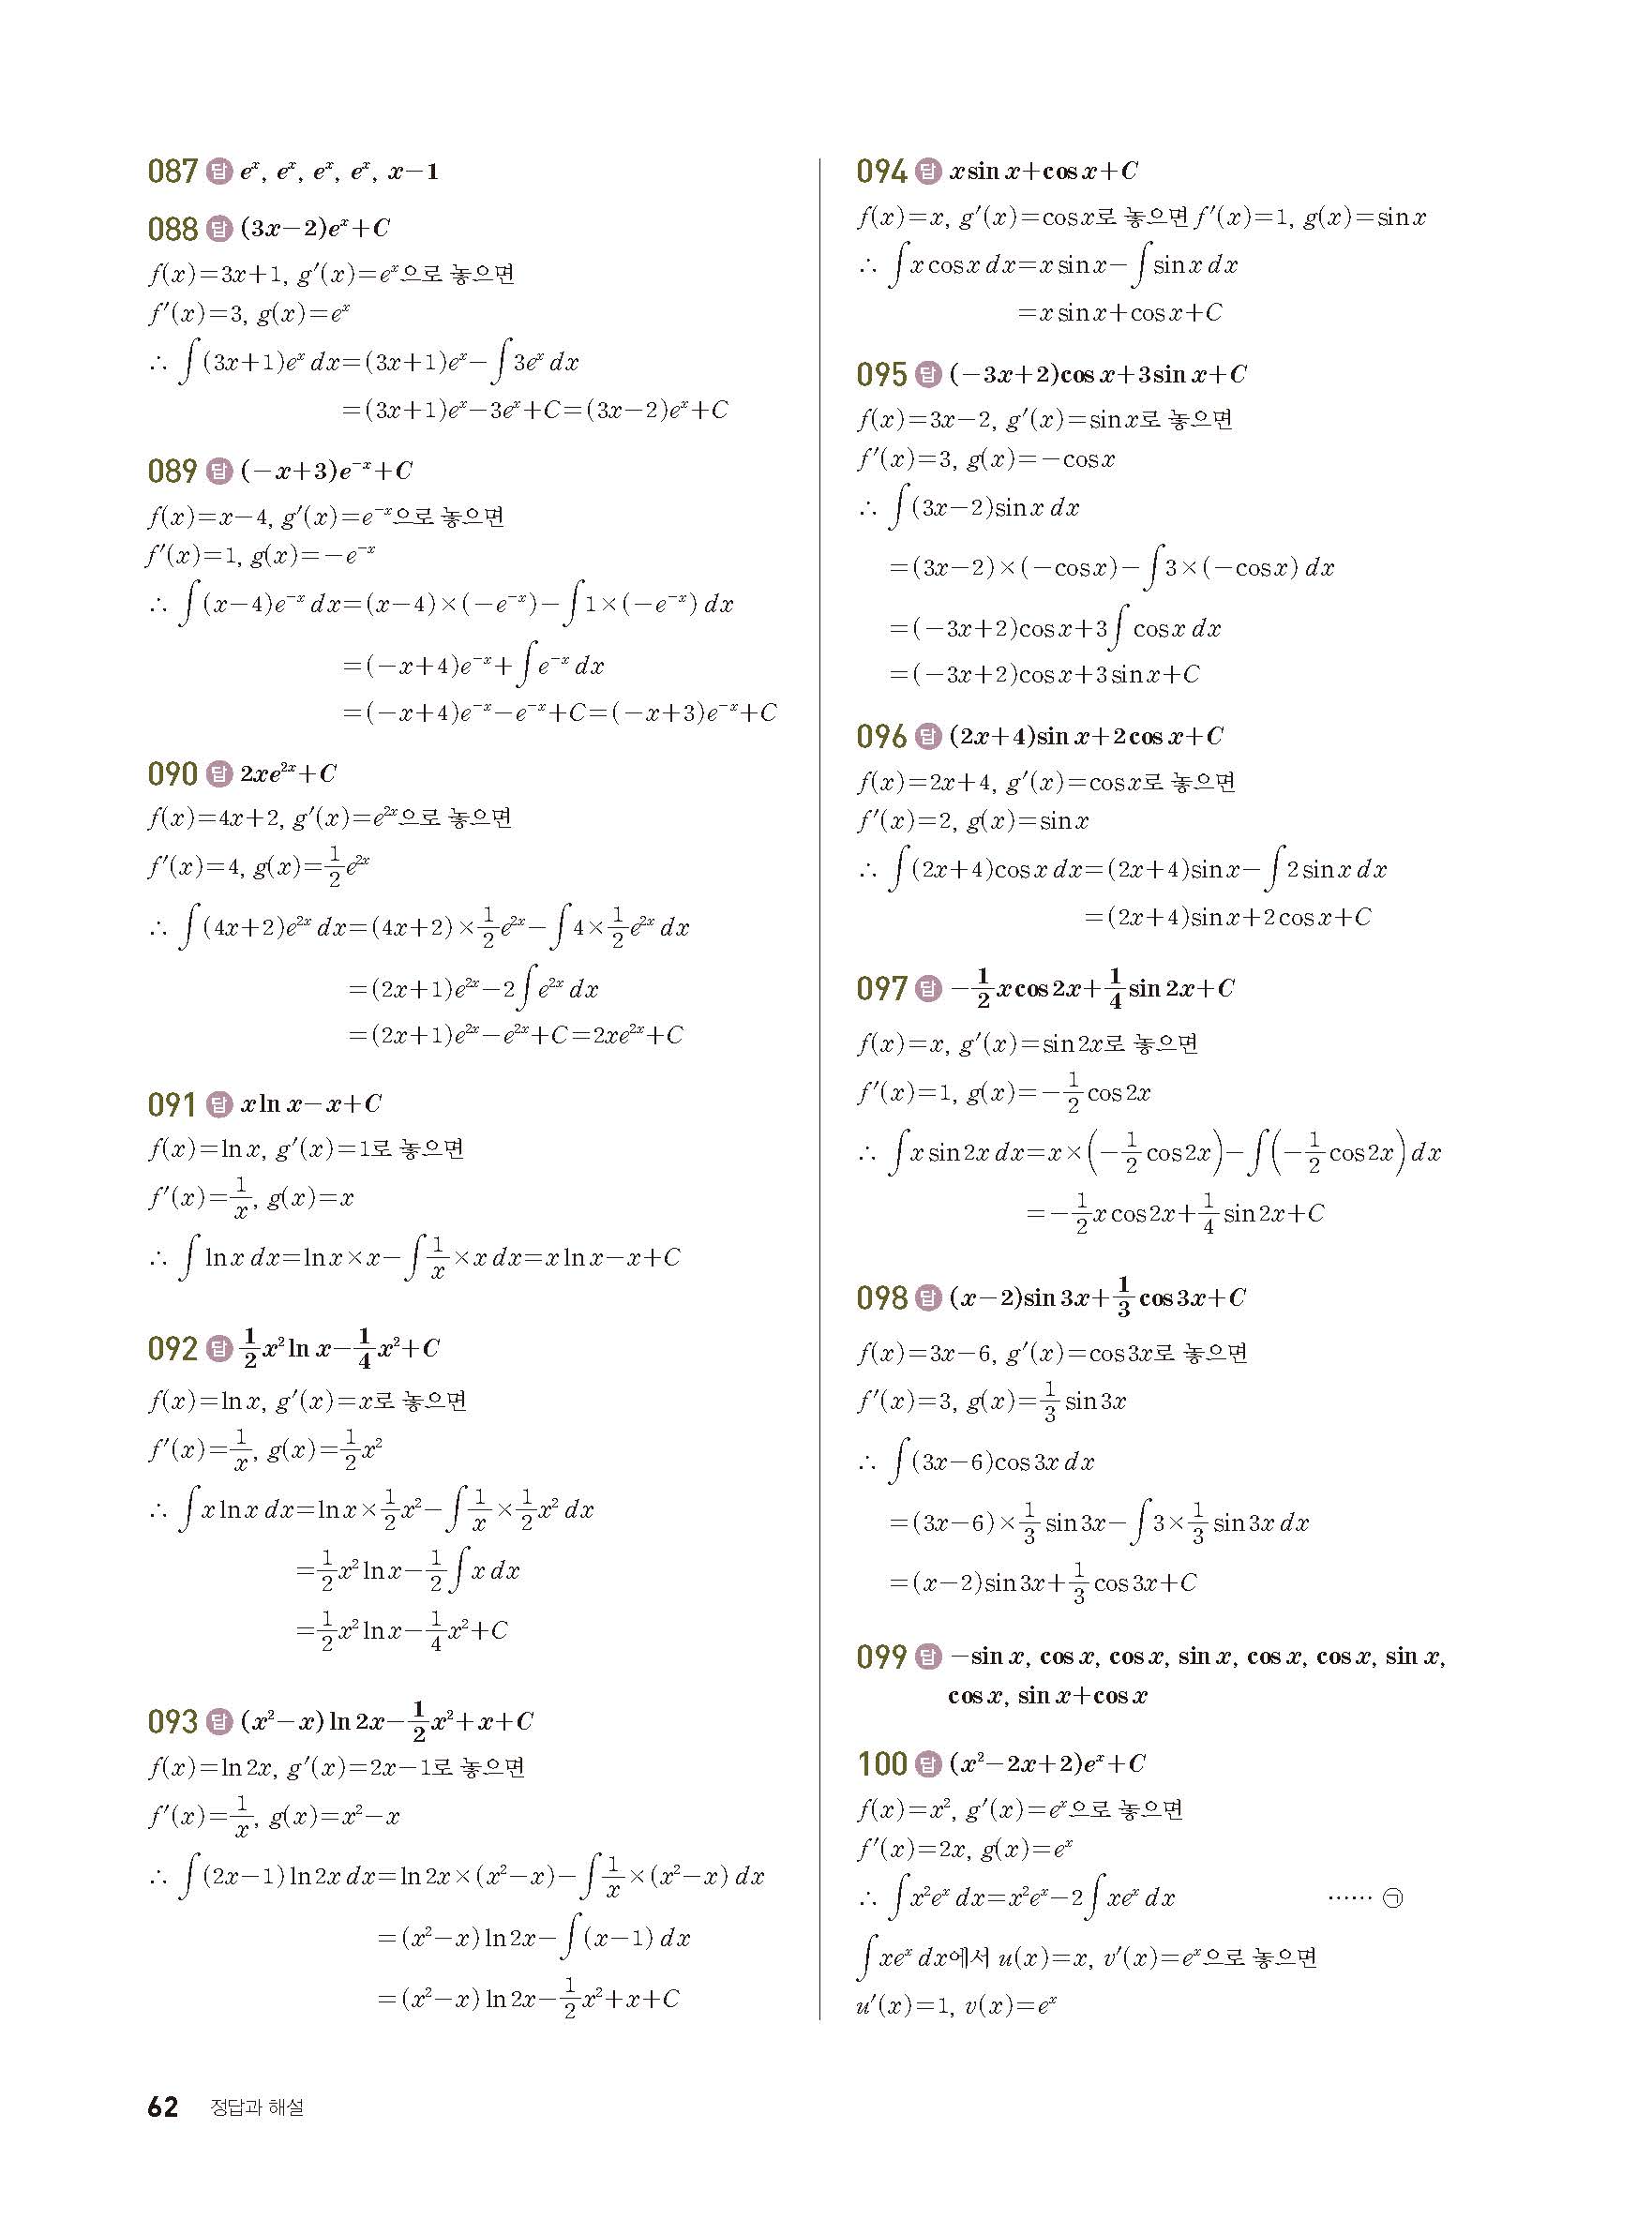 087 답 eˣ, eˣ, eˣ, eˣ, x−1
088 답 (3x−2)eˣ+C
f(x)=3x+1, g′(x)=eˣ으로 놓으면
f′(x)=3, g(x)=eˣ
∴ ∫(3x+1)eˣ dx=(3x+1)eˣ−∫3eˣ dx
=(3x+1)eˣ−3eˣ+C=(3x−2)eˣ+C
089 답 (−x+3)e⁻ˣ+C
f(x)=x−4, g′(x)=e⁻ˣ으로 놓으면
f′(x)=1, g(x)=−e⁻ˣ
∴ ∫(x−4)e⁻ˣ dx=(x−4)×(−e⁻ˣ)−∫1×(−e⁻ˣ) dx
=(−x+4)e⁻ˣ+∫e⁻ˣ dx
=(−x+4)e⁻ˣ−e⁻ˣ+C=(−x+3)e⁻ˣ+C
090 답 2xe²ˣ+C
f(x)=4x+2, g′(x)=e²ˣ으로 놓으면
f′(x)=4, g(x)=1/2 e²ˣ
∴ ∫(4x+2)e²ˣ dx=(4x+2)×1/2 e²ˣ−∫4×1/2 e²ˣ dx
=(2x+1)e²ˣ−2∫e²ˣ dx
=(2x+1)e²ˣ−e²ˣ+C=2xe²ˣ+C
091 답 x ln x−x+C
f(x)=ln x, g′(x)=1로 놓으면
f′(x)=1/x, g(x)=x
∴ ∫ln x dx=ln x×x−∫1/x×x dx=x ln x−x+C
092 답 1/2 x² ln x−1/4 x²+C
f(x)=ln x, g′(x)=x로 놓으면
f′(x)=1/x, g(x)=1/2 x²
∴ ∫x ln x dx=ln x×1/2 x²−∫1/x×1/2 x² dx
=1/2 x² ln x−1/2∫x dx
=1/2 x² ln x−1/4 x²+C
093 답 (x²−x) ln 2x−1/2 x²+x+C
f(x)=ln 2x, g′(x)=2x−1로 놓으면
f′(x)=1/x, g(x)=x²−x
∴ ∫(2x−1) ln 2x dx=ln 2x×(x²−x)−∫1/x×(x²−x) dx
=(x²−x) ln 2x−∫(x−1) dx
=(x²−x) ln 2x−1/2 x²+x+C
094 답 x sin x+cos x+C
f(x)=x, g′(x)=cos x로 놓으면 f′(x)=1, g(x)=sin x
∴ ∫x cos x dx=x sin x−∫sin x dx
=x sin x+cos x+C
095 답 (−3x+2)cos x+3 sin x+C
f(x)=3x−2, g′(x)=sin x로 놓으면
f′(x)=3, g(x)=−cos x
∴ ∫(3x−2)sin x dx
=(3x−2)×(−cos x)−∫3×(−cos x) dx
=(−3x+2)cos x+3∫cos x dx
=(−3x+2)cos x+3 sin x+C
096 답 (2x+4)sin x+2 cos x+C
f(x)=2x+4, g′(x)=cos x로 놓으면
f′(x)=2, g(x)=sin x
∴ ∫(2x+4)cos x dx=(2x+4)sin x−∫2 sin x dx
=(2x+4)sin x+2 cos x+C
097 답 −1/2 x cos 2x+1/4 sin 2x+C
f(x)=x, g′(x)=sin 2x로 놓으면
f′(x)=1, g(x)=−1/2 cos 2x
∴ ∫x sin 2x dx=x×(−1/2 cos 2x)−∫(−1/2 cos 2x) dx
=−1/2 x cos 2x+1/4 sin 2x+C
098 답 (x−2)sin 3x+1/3 cos 3x+C
f(x)=3x−6, g′(x)=cos 3x로 놓으면
f′(x)=3, g(x)=1/3 sin 3x
∴ ∫(3x−6)cos 3x dx
=(3x−6)×1/3 sin 3x−∫3×1/3 sin 3x dx
=(x−2)sin 3x+1/3 cos 3x+C
099 답 −sin x, cos x, cos x, sin x, cos x, cos x, sin x,
cos x, sin x+cos x
100 답 (x²−2x+2)eˣ+C
f(x)=x², g′(x)=eˣ으로 놓으면
f′(x)=2x, g(x)=eˣ
∴ ∫x²eˣ dx=x²eˣ−2∫xeˣ dx …… ㉠
∫xeˣ dx에서 u(x)=x, v′(x)=eˣ으로 놓으면
u′(x)=1, v(x)=eˣ
62 정답과 해설